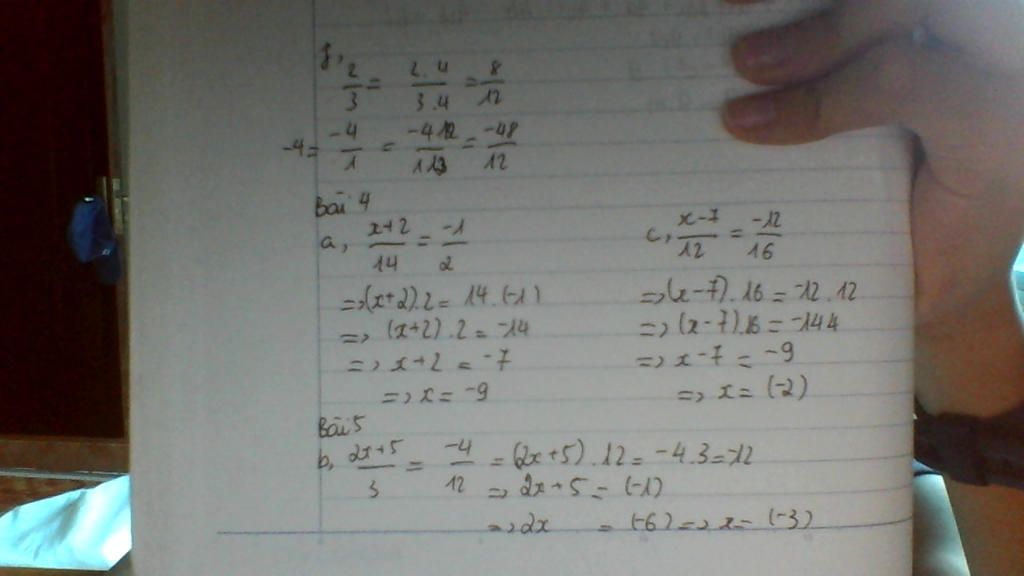 f,
2/3 = 2.4/3.4 = 8/12
-4 = -4/1 = -4.12/1.12 = -48/12
Bài 4
a, x+2/14 = -1/2
=> (x+2).2 = 14.(-1)
=> (x+2).2 = -14
=> x+2 = -7
=> x = -9
c, x-7/12 = -12/16
=> (x-7).16 = -12.12
=> (x-7).16 = -144
=> x-7 = -9
=> x = (-2)
Bài 5
b, 2x+5/3 = -4/12 = (2x+5).12 = -4.3 = -12
=> 2x+5 = (-1)
=> 2x = (-6) => x = (-3)